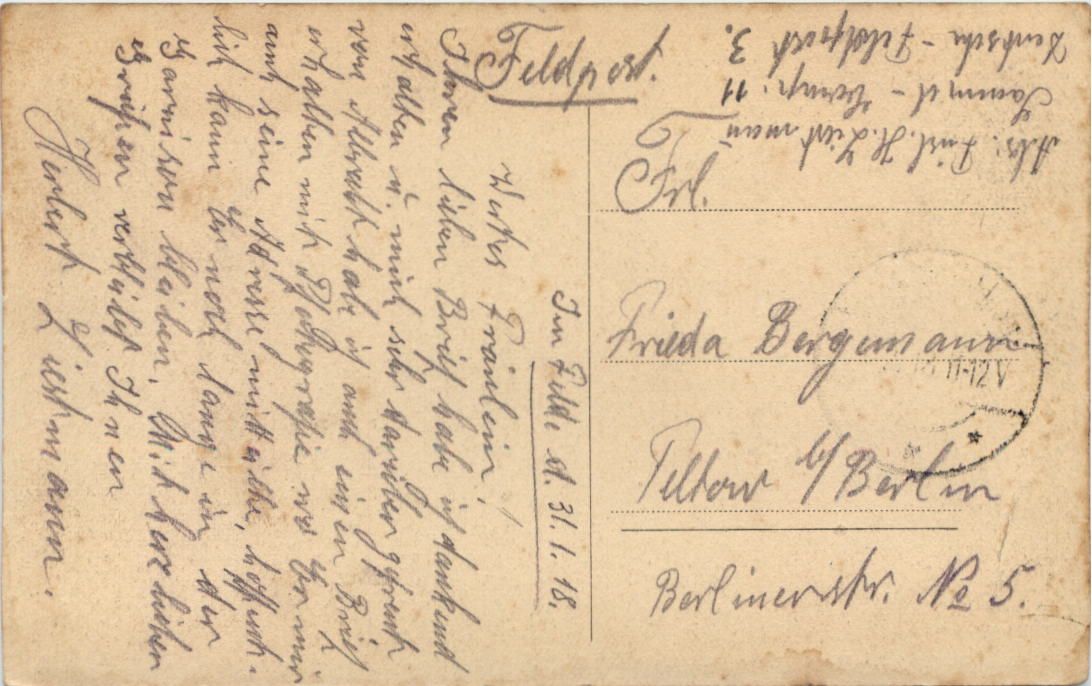 Feldpost.
Abs: H. Liestmann
Sammel-Komp. 11
Deutsche-Feldpost 3.
Frl.
Frieda Bergemann
Teltow b/Berlin
Berlinerstr. No 5.
Im Felde d. 31.1.18.
Wertes Fräulein,
Ihren lieben Brief habe ich dankend
erhalten u. mich sehr darüber gefreut
von habe ich auch einen Brief
erhalten mit Photografie wo Er mir
auch seine Adresse mitteilte, hoffent-
lich kann Er noch lange in der
Garnison bleiben. Mit herzlichen
Grüßen verbleibt Ihnen
Herbert Liestmann.